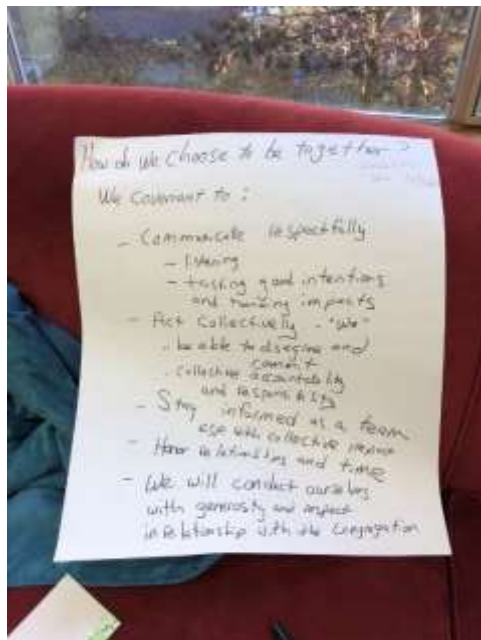 How do we choose to be together?
We Covenant to :
- Communicate respectfully
- listening
- trusting good intentions
and naming impacts
- Act Collectively - "We"
- be able to disagree and
commit
- collective accountability
and responsibility
- Stay informed as a team
esp with collective
- Honor relationships and time
- We will conduct ourselves
with generosity and respect
in relationship with the Congregation